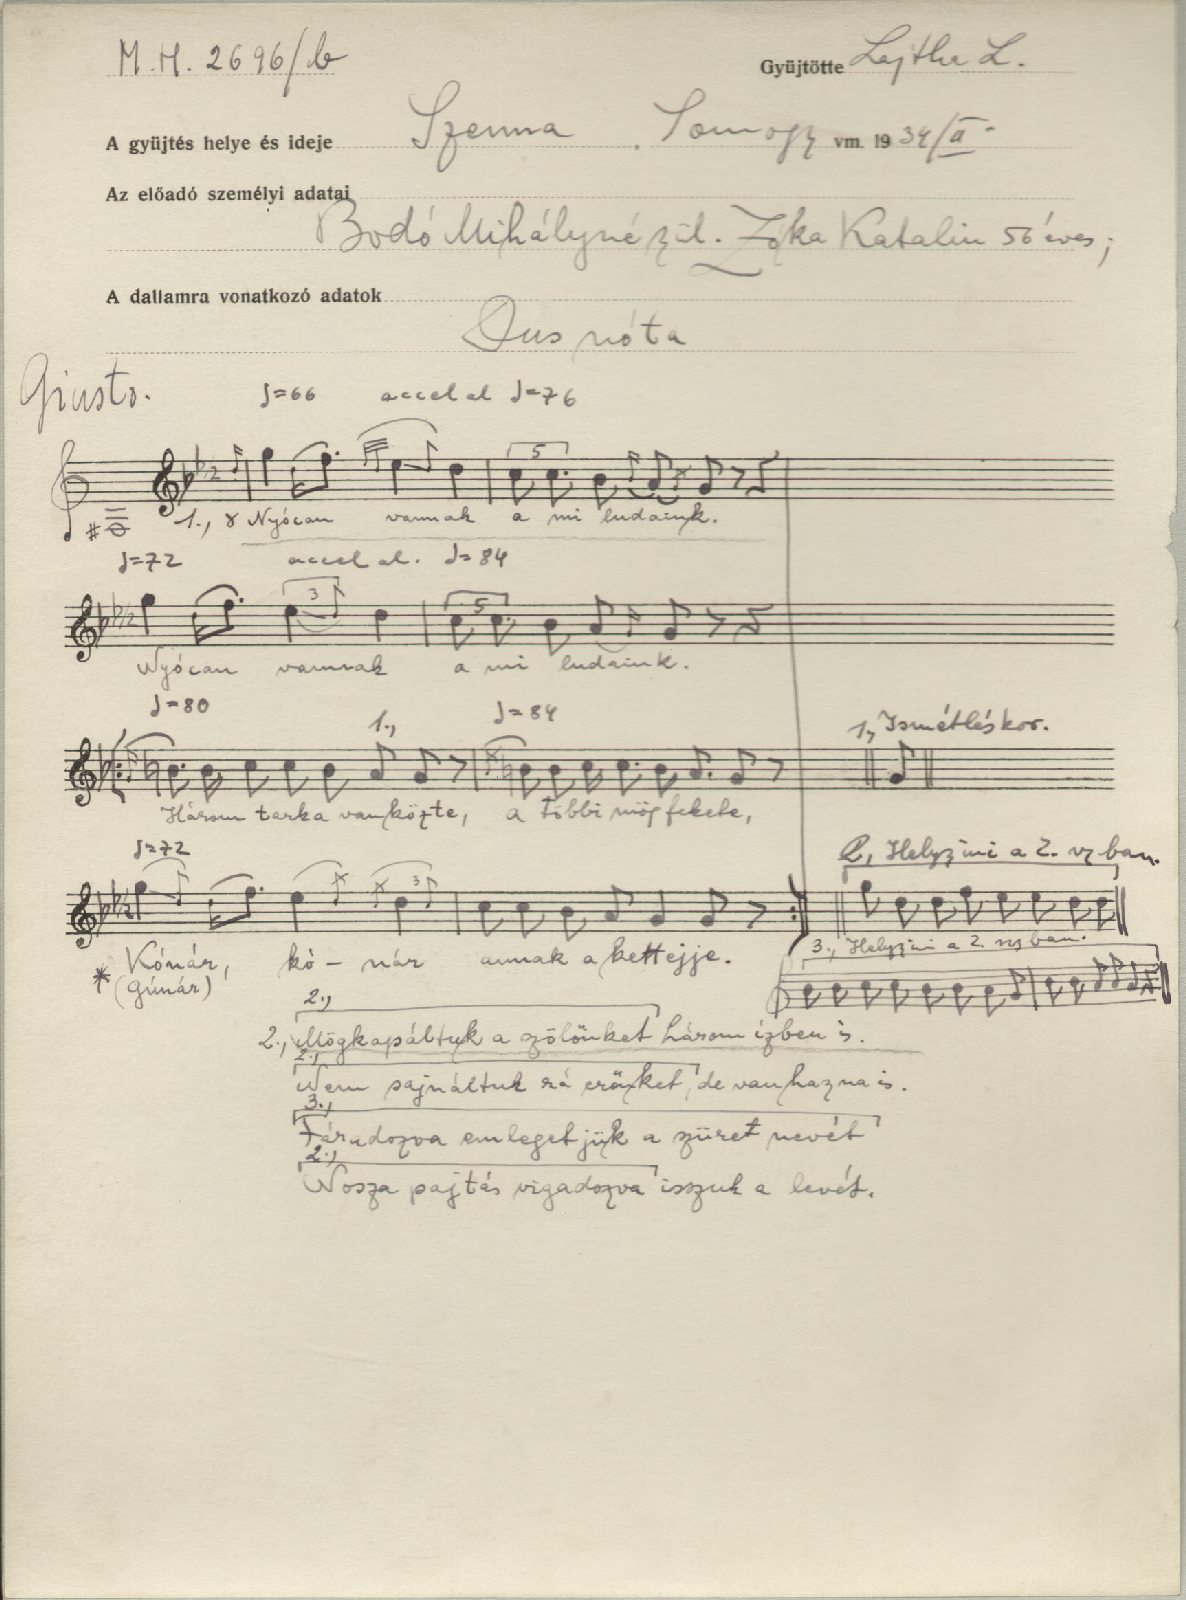 M. H. 2696/b
Gyüjtötte Lajtha L.
A gyüjtés helye és ideje Szenna. Somogy vm. 1934/II.
Az előadó személyi adatai
Bodó Mihályné szül. Zóka Katalin 56 éves;
A dallamra vonatkozó adatok
Dus nóta
Giusto. ♩=66 accel al ♩=76
5
1., Nyócan vannak a mi ludaink.
♩=72 accel al. ♩=84
3 5
Nyócan vannak a mi ludaink.
♩=80 1., ♩=84 1, Ismétléskor.
Három tarka van közte, a többi mög fekete,
♩=72 2, Helyszíni a 2. vszban.
3
3., Helyszíni a 2. vszban.
Kónár, kó – nár annak a kettejje.
* (gúnár)
2.,
2., Mögkapáltuk a szőlőnket három ízben is.
2.,
Nem sajnáltuk rá erőnket, de van haszna is.
3.,
Fáradozva emlegetjük a szüret nevét
2.,
Nosza pajtás vigadozva isszuk a levét.